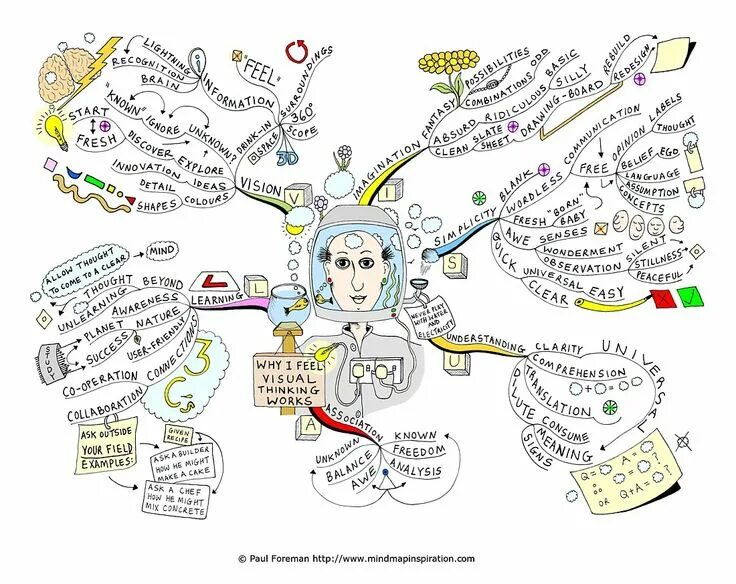 LIGHTNING
RECOGNITION
BRAIN
INFORMATION
"FEEL"
SURROUNDINGS
360°
SCOPE
DRINK-IN
SPACE
3D
START
FRESH
"KNOWN" IGNORE UNKNOWN?
DISCOVER EXPLORE
INNOVATION IDEAS
DETAIL
SHAPES COLOURS
VISION
V
IMAGINATION
I
FANTASY
POSSIBILITIES
COMBINATIONS ODD
ABSURD RIDICULOUS BASIC
SILLY
CLEAN SLATE
SHEET
DRAWING-BOARD
REBUILD
REDESIGN
SIMPLICITY
S
BLANK
WORDLESS
COMMUNICATION
FREE
OPINION LABELS
THOUGHT
BELIEF EGO
LANGUAGE
ASSUMPTION
CONCEPTS
FRESH "BORN"
BABY
AWE SENSES
WONDERMENT
OBSERVATION SILENT
STILLNESS
PEACEFUL
QUICK
UNIVERSAL EASY
CLEAR
ALLOW THOUGHT
TO COME TO A CLEAR
MIND
THOUGHT BEYOND
UNLEARNING
AWARENESS
PLANET NATURE
STUDY
SUCCESS
USER-FRIENDLY
CO-OPERATION CONNECTIONS
COLLABORATION
3
C's
LEARNING
L
L
ASK OUTSIDE
YOUR FIELD
EXAMPLES:
GIVEN
RECIPE
ASK A BUILDER
HOW HE MIGHT
MAKE A CAKE
ASK A CHEF
HOW HE MIGHT
MIX CONCRETE
WHY I FEEL
VISUAL
THINKING
WORKS
NEVER PLAY
WITH WATER
AND
ELECTRICITY
ASSOCIATION
A
UNKNOWN
BALANCE
AWE
KNOWN
FREEDOM
ANALYSIS
UNDERSTANDING
U
CLARITY
COMPREHENSION
TRANSLATION
UNIVERSAL
DILUTE CONSUME
MEANING
SIGNS
Q = A =
OR
Q + A =
© Paul Foreman http://www.mindmapinspiration.com